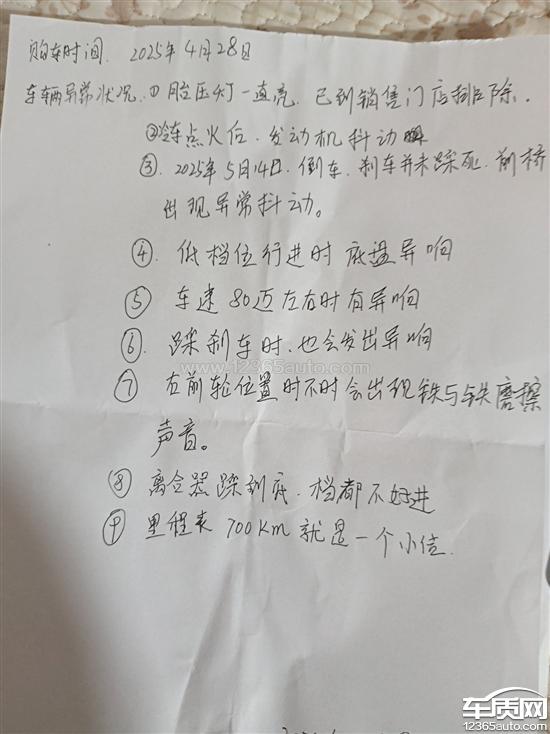 购车时间. 2025年4月28日
车辆异常状况. ① 胎压灯一直亮. 已到销售门店排除.
②冷车点火后. 发动机抖动
③. 2025年5月14日. 倒车. 刹车并未踩死. 前桥
出现异常抖动。
④. 低档位行进时 底盘异响
⑤. 车速80迈左右时有异响
⑥. 踩刹车时. 也会发出异响
www.12365auto.com
⑦. 右前轮位置时不时会出现铁与铁磨擦
声音。
⑧ 离合器踩到底. 档都不好进
⑨ 里程表700km就是一个小结.
车质网
12365auto.com